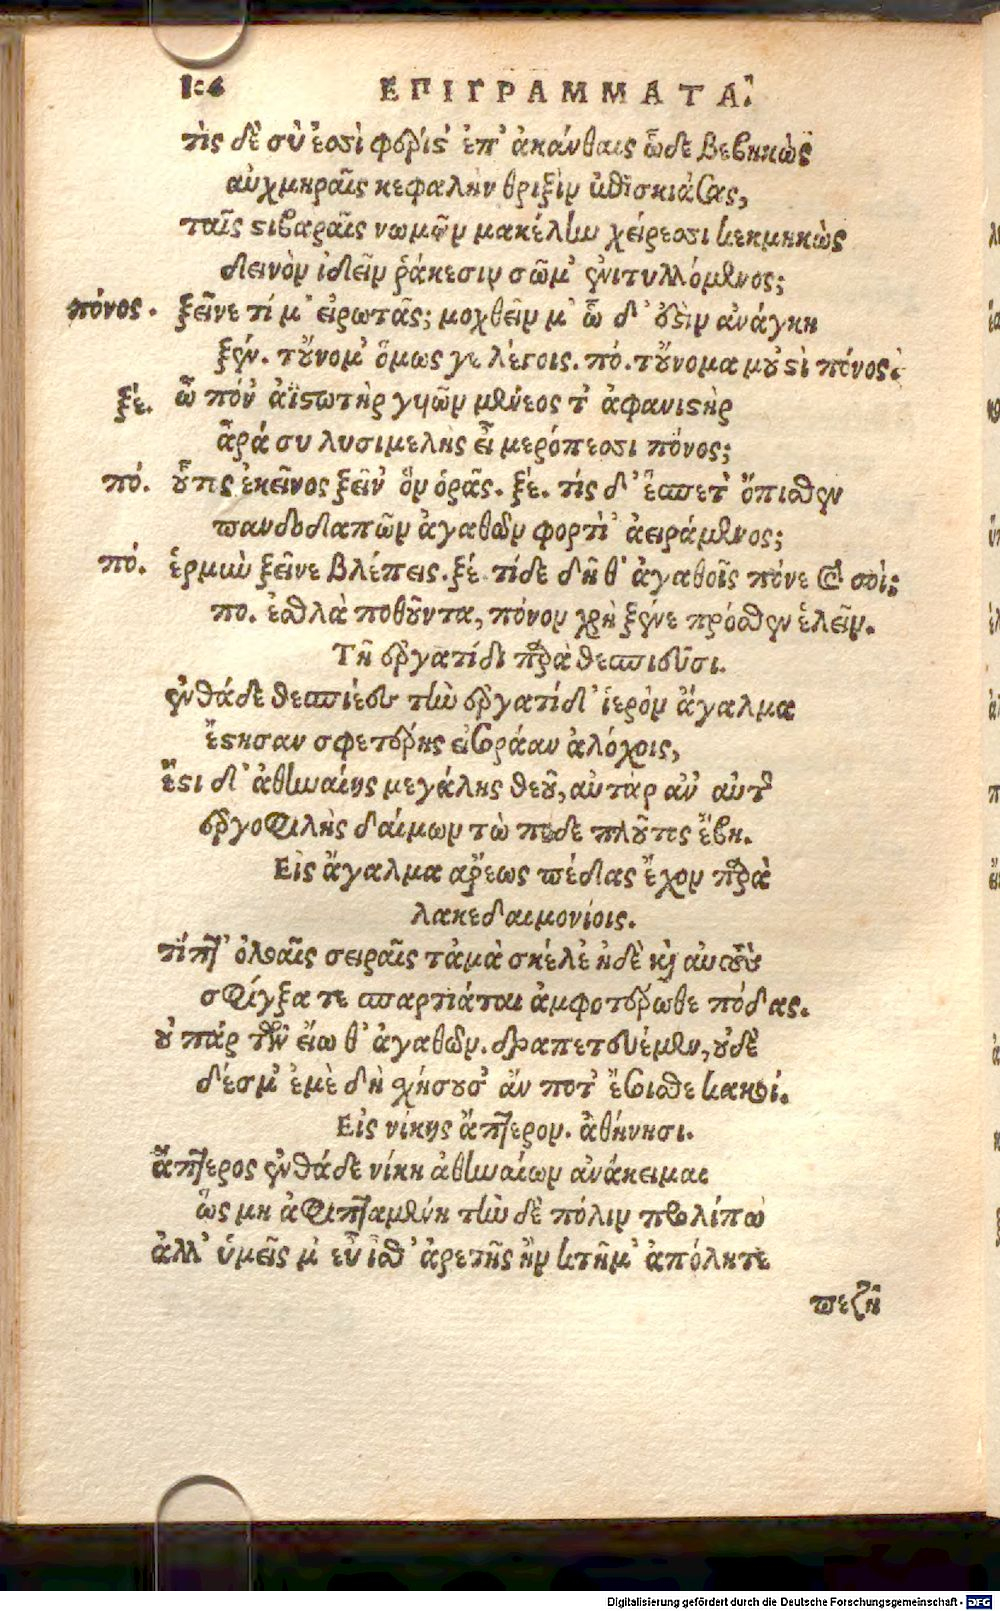 ΕΠΙΓΡΑΜΜΑΤΑ.
τὶς δὲ σὺ ἐσσὶ φέρις ἐπ' ἀκάνθαις ὧδε βεβηκὼς
αὐχμηραῖς κεφαλὴν θριξὶν ὑποσκιάσας,
ταῖς στιβαραῖς νωμῶν μακέλην χείρεσσι κεκμηκὼς
δεινὸν ἰδεῖν ῥάκεσιν σῶμ' ἐνιτυλλόμενος;
πόνος. ξεῖνε τί μ' εἰρωτᾶς; μοχθεῖν μ' ὧδ' οὐδὲν ἀνάγκη
ξέν. τοὔνομ' ὅμως γε λέγοις. πό. τοὔνομα μοὐστὶ πόνος.
ξέ. ὦ πόν' ἀϊστωτὴρ μένεος τ' ἀφανιστὴρ
ἆρά συ λυσιμελὴς εἶ μερόπεσσι πόνος;
πό. οὗτος ἐκεῖνος ξεῖν' ὃν ὁρᾶς. ξέ. τίς δ' ἕσπετ' ὄπισθεν
παντοδαπῶν ἀγαθῶν φορτί' ἀειράμενος;
πό. ἑρμῆν ξεῖνε βλέπεις. ξέ. τίδε δῆθ' ἀγαθοῖς πόνε καὶ σοί;
πο. ἐσθλὰ ποθοῦντα, πόνον χρὴ ξένε πρόσθεν ἑλεῖν.
Τῆ ἐργατίδι παρὰ θεσπιεῦσι.
ἐνθάδε θεσπιέες τὴν ἐργατίδ' ἱερὸν ἄγαλμα
ἔστησαν σφετέρης εἰσοράαν ἀλόχοις,
ἔστι δ' ἀθηναίης μεγάλης θεοῦ, αὐτὰρ αὖ αὐτῆς
ἐργοφιλὴς δαίμων τὼ ποδε πλοῦτος ἔβη.
Εἰς ἄγαλμα ἄρεως πέδας ἔχον παρὰ
λακεδαιμονίοις.
τίπτ' ὀλοαῖς σειραῖς τἀμὰ σκέλε' ἠδὲ καὶ αὐτοὺς
σφίγξατε σπαρτιάται ἀμφοτέρωθε πόδας.
οὐ πάρ τῶν εἴω θ' ἀγαθῶν. δραπετευέμεν, οὐδὲ
δέσμ' ἐμὲ δὴ χήσουσ' ἄν ποτ' ἔσισθε κακοί.
Εἰς νίκης ἄπτερον. ἀθήνησι.
ἄπτερος ἐνθάδε νίκη ἀθηναίων ἀνάκειμαι
ὥς μη ἀφιπταμένη τὴν δὲ πόλιν προλίπω
ἀλλ' ὑμεῖς μ' εὖ ἴσθ' ἀρετῆς ἢν κτῆμ' ἀπόλητε
πεζῆ
Digitalisierung gefördert durch die Deutsche Forschungsgemeinschaft - DFG